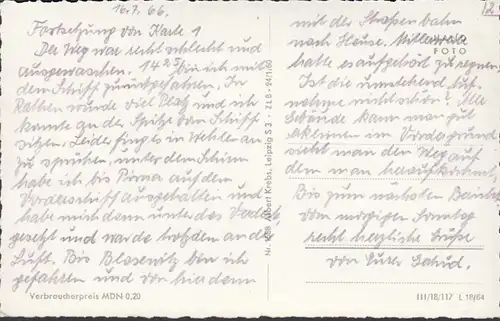 16.7.66.
2
Fortsetzung von Karte 1
Der Weg war recht schlecht und
ausgewaschen. 14²⁵ bin ich mit
dem Schiff zurückgefahren. In
Rathen wurde viel Platz und ich
konnte an der Spitze vom Schiff
sitzen. Leider fing es in Wehlen an
zu sprühen, unter dem Schirm
habe ich bis Pirna auf dem
Vorderschiff ausgehalten und
habe mich dann unter das Verdeck
gesetzt und war da trotzdem an der
Luft. Bis Blasewitz bin ich
gefahren und von hier dann
mit der Straßenbahn
nach Hause. Mittlerweile
FOTO
hatte es aufgehört zu regnen.
Ist die umstehend Auf-
nahme nicht schön? Alle
Wände kann man gut
erkennen im Vordergrund
sieht man den Weg auf
dem man heraufkommt.
Bis zum nächsten Bericht
vom morgigen Sonntag
recht herzliche Grüße
von Eurer
Verbraucherpreis MDN 0,20
Albert Krebs, Leipzig S 3 - ZLB - 24/1/60
III/18/117 L 18/64